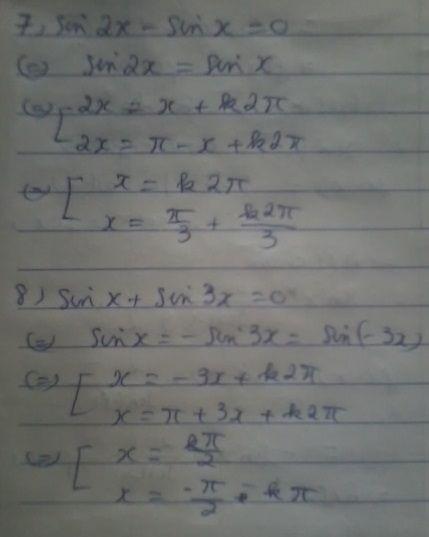 7, sin 2x - sin x = 0
(=) sin 2x = sin x
(=) [ 2x = x + k2π
2x = π - x + k2π
(=) [ x = k2π
x = π/3 + k2π/3
8) sin x + sin 3x = 0
(=) sin x = - sin 3x = sin(-3x)
(=) [ x = -3x + k2π
x = π + 3x + k2π
(=) [ x = kπ/2
x = -π/2 - kπ